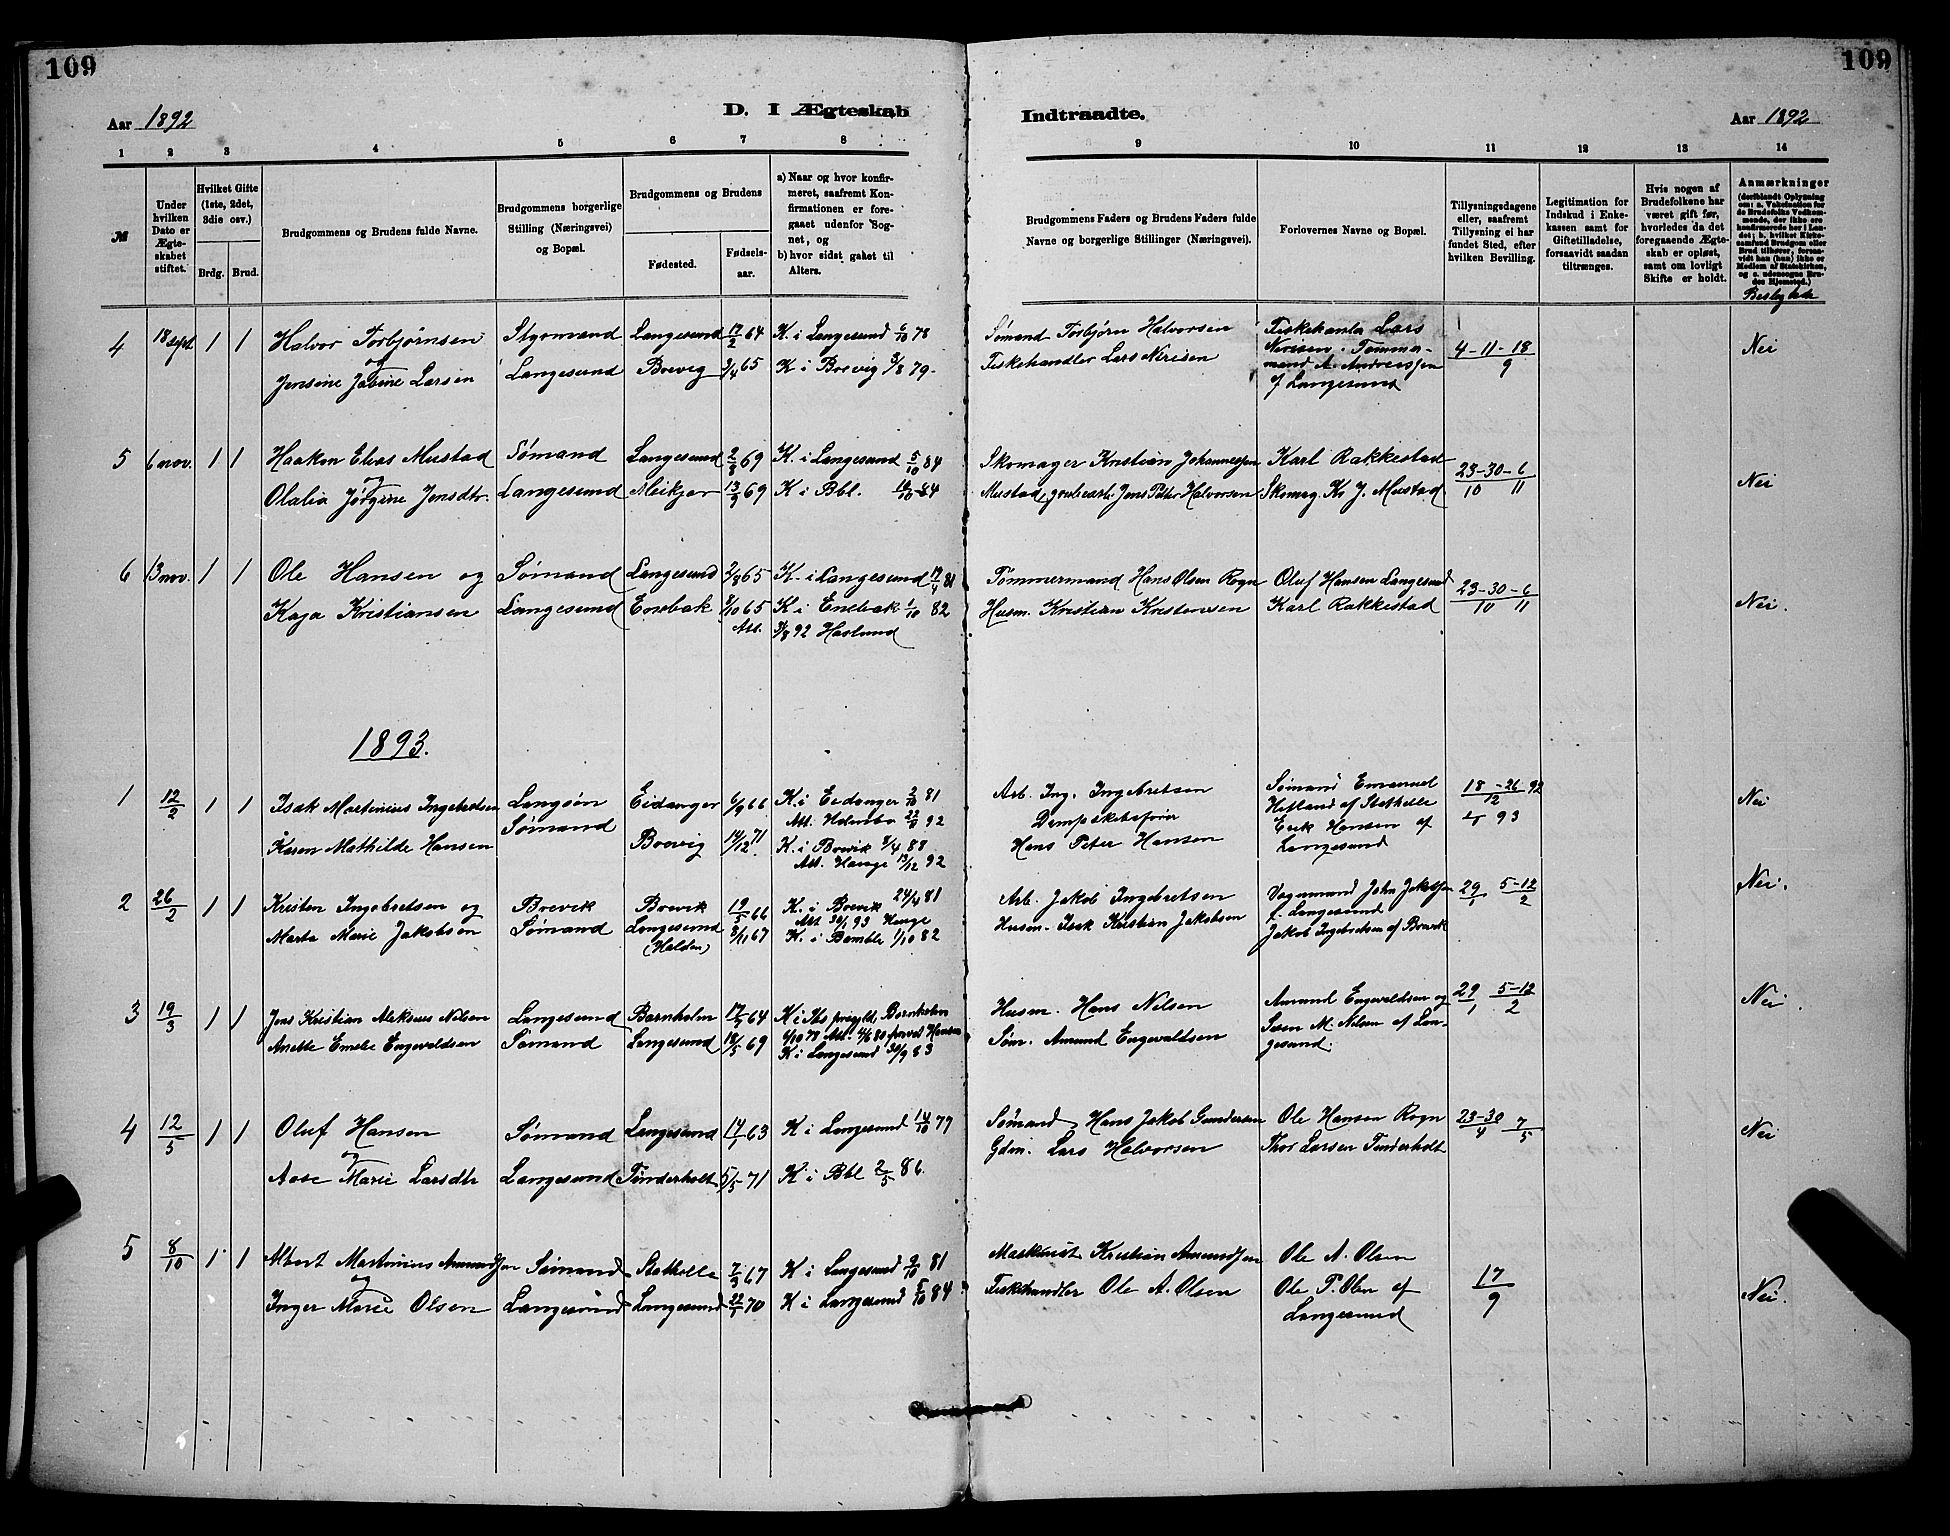 109
109
Aar 1892
D. I Ægteskab
Indtraadte.
Aar 1892
1 2 3 4 5 6 7 8 9 10 11 12 13 14
№
Under hvilken Dato er Ægteskabet stiftet.
Hvilket Gifte (1ste, 2det, 3die osv.)
Brdg. Brud.
Brudgommens og Brudens fulde Navne.
Brudgommens borgerlige Stilling (Næringsvei) og Bopæl.
Brudgommens og Brudens
Fødested.
Fødselsaar.
a) Naar og hvor konfirmeret, saafremt Konfirmationen er foregaaet udenfor Sognet, og
b) hvor sidst gaaet til Alters.
Brudgommens Faders og Brudens Faders fulde Navne og borgerlige Stillinger (Næringsvei).
Forlovernes Navne og Bopæl.
Tillysningsdagene eller, saafremt Tillysning ei har fundet Sted, efter hvilken Bevilling.
Legitimation for Indskud i Enkekassen samt for Giftetilladelse, forsaavidt saadan tiltrænges.
Hvis nogen af Brudefolkene har været gift før, hvorledes da det foregaaende Ægteskab er opløst, samt om lovligt Skifte er holdt.
Anmærkninger
4 18 sept 1 1 Halvor Torbjørnsen Styrmand Langesund 64 K. i Langesund 6/10 78 Sømand Torbjørn Halvorsen Fiskehandler Lars 4-11-18/9 Nei
og
Jensine Jabine Larsen Langesund Brevig 65 K i Brevig 79. Fiskehandler Lars Nirisen Nirisen. Tømmermand A. Andreassen
af Langesund
5 6 nov. 1 1 Haakon Elias Mustad Sømand Langesund 2/8 69 K. i Langesund 5/10 84 Skomager Kristian Johannessen Karl Rakkestad 23-30-6/10 11 Nei
og
Olalia Jørgine Jensdtr. Langesund 69 K i Bbl. Mustad, Jens Petter Halvorsen Skomag. Kr J. Mustad
6 13 nov. 1 1 Ole Hansen og Sømand Langesund 2/8 65 K. i Langesund 81 Tømmermand Hans Olsen Rogn Oluf Hansen Langesund 23-30-6/10 11 Nei.
Kaja Kristiansen Langesund Enebak 65 K i Enebak 1/10 82 Husm. Kristian Kristensen Karl Rakkestad
Att. 92 Haslund
1893.
1 12/2 1 1 Isak Martinius Ingebretsen Langøen Eidanger 6/9 66 K. i Eidanger 2/10 81 Arb. Ing. Ingebretsen Sømand Emanuel 18-26/12 92 Nei
Sømand Att. 92 Hetland af Stathelle 93
Karen Mathilde Hansen Brevig 14/12 71 K. i Brevik 88 Hans Peter Hansen Erik Hansen af
Att. Hauge 13/12 92 Langesund
2 26/2 1 1 Kristen Ingebretsen og Brevik Brevik 66 K. i Brevik 24/4 81 Arb. Jakob Ingebretsen Vognmand John Jakobsen 29/1 5-12/2 Nei.
Att 93 Hauge f. Langesund
Marta Marie Jakobsen Sømand Langesund 8/11 67 K. i Bamble 1/10 82 Husm. Isak Kristian Jakobsen Jakob Ingebretsen af Brevik
(Halden)
3 19/3 1 1 Jens Kristian Nilsen Langesund Barnholm 64 Bornholm Husm. Hans Nilsen Amund Engevaldsen og 29/1 5-12/2 Nei
Anette Emelie Engevaldsen Sømand Langesund 18/5 69 K i Langesund 30/9 83 Søm. Amund Engevaldsen M. Nilsen af Langesund.
4 12/5 1 1 Oluf Hansen Sømand Langesund 63 K i Langesund 14/10 77 Sømand Hans Jakob Gundersen Ole Hansen Rogn 23-30/4 7/5 Nei
og
Aase Marie Larsdtr Langesund Tinderholt 5/5 71 K i Bbl 2/5 86. Gdm. Lars Halvorsen Thor Larsen Tinderholt
5 8/10 1 1 Albert Martinius Amundsen Sømand Stathelle 7/3 67 K i Langesund 2/10 81 Maskinist Kristian Amundsen Ole A. Olsen 17/9 Nei.
og
Inger Marie Olsen Langesund Langesund 70 K i Langesund 5/10 84 Fiskehandler Ole A. Olsen Ole P. Olsen af
Langesund